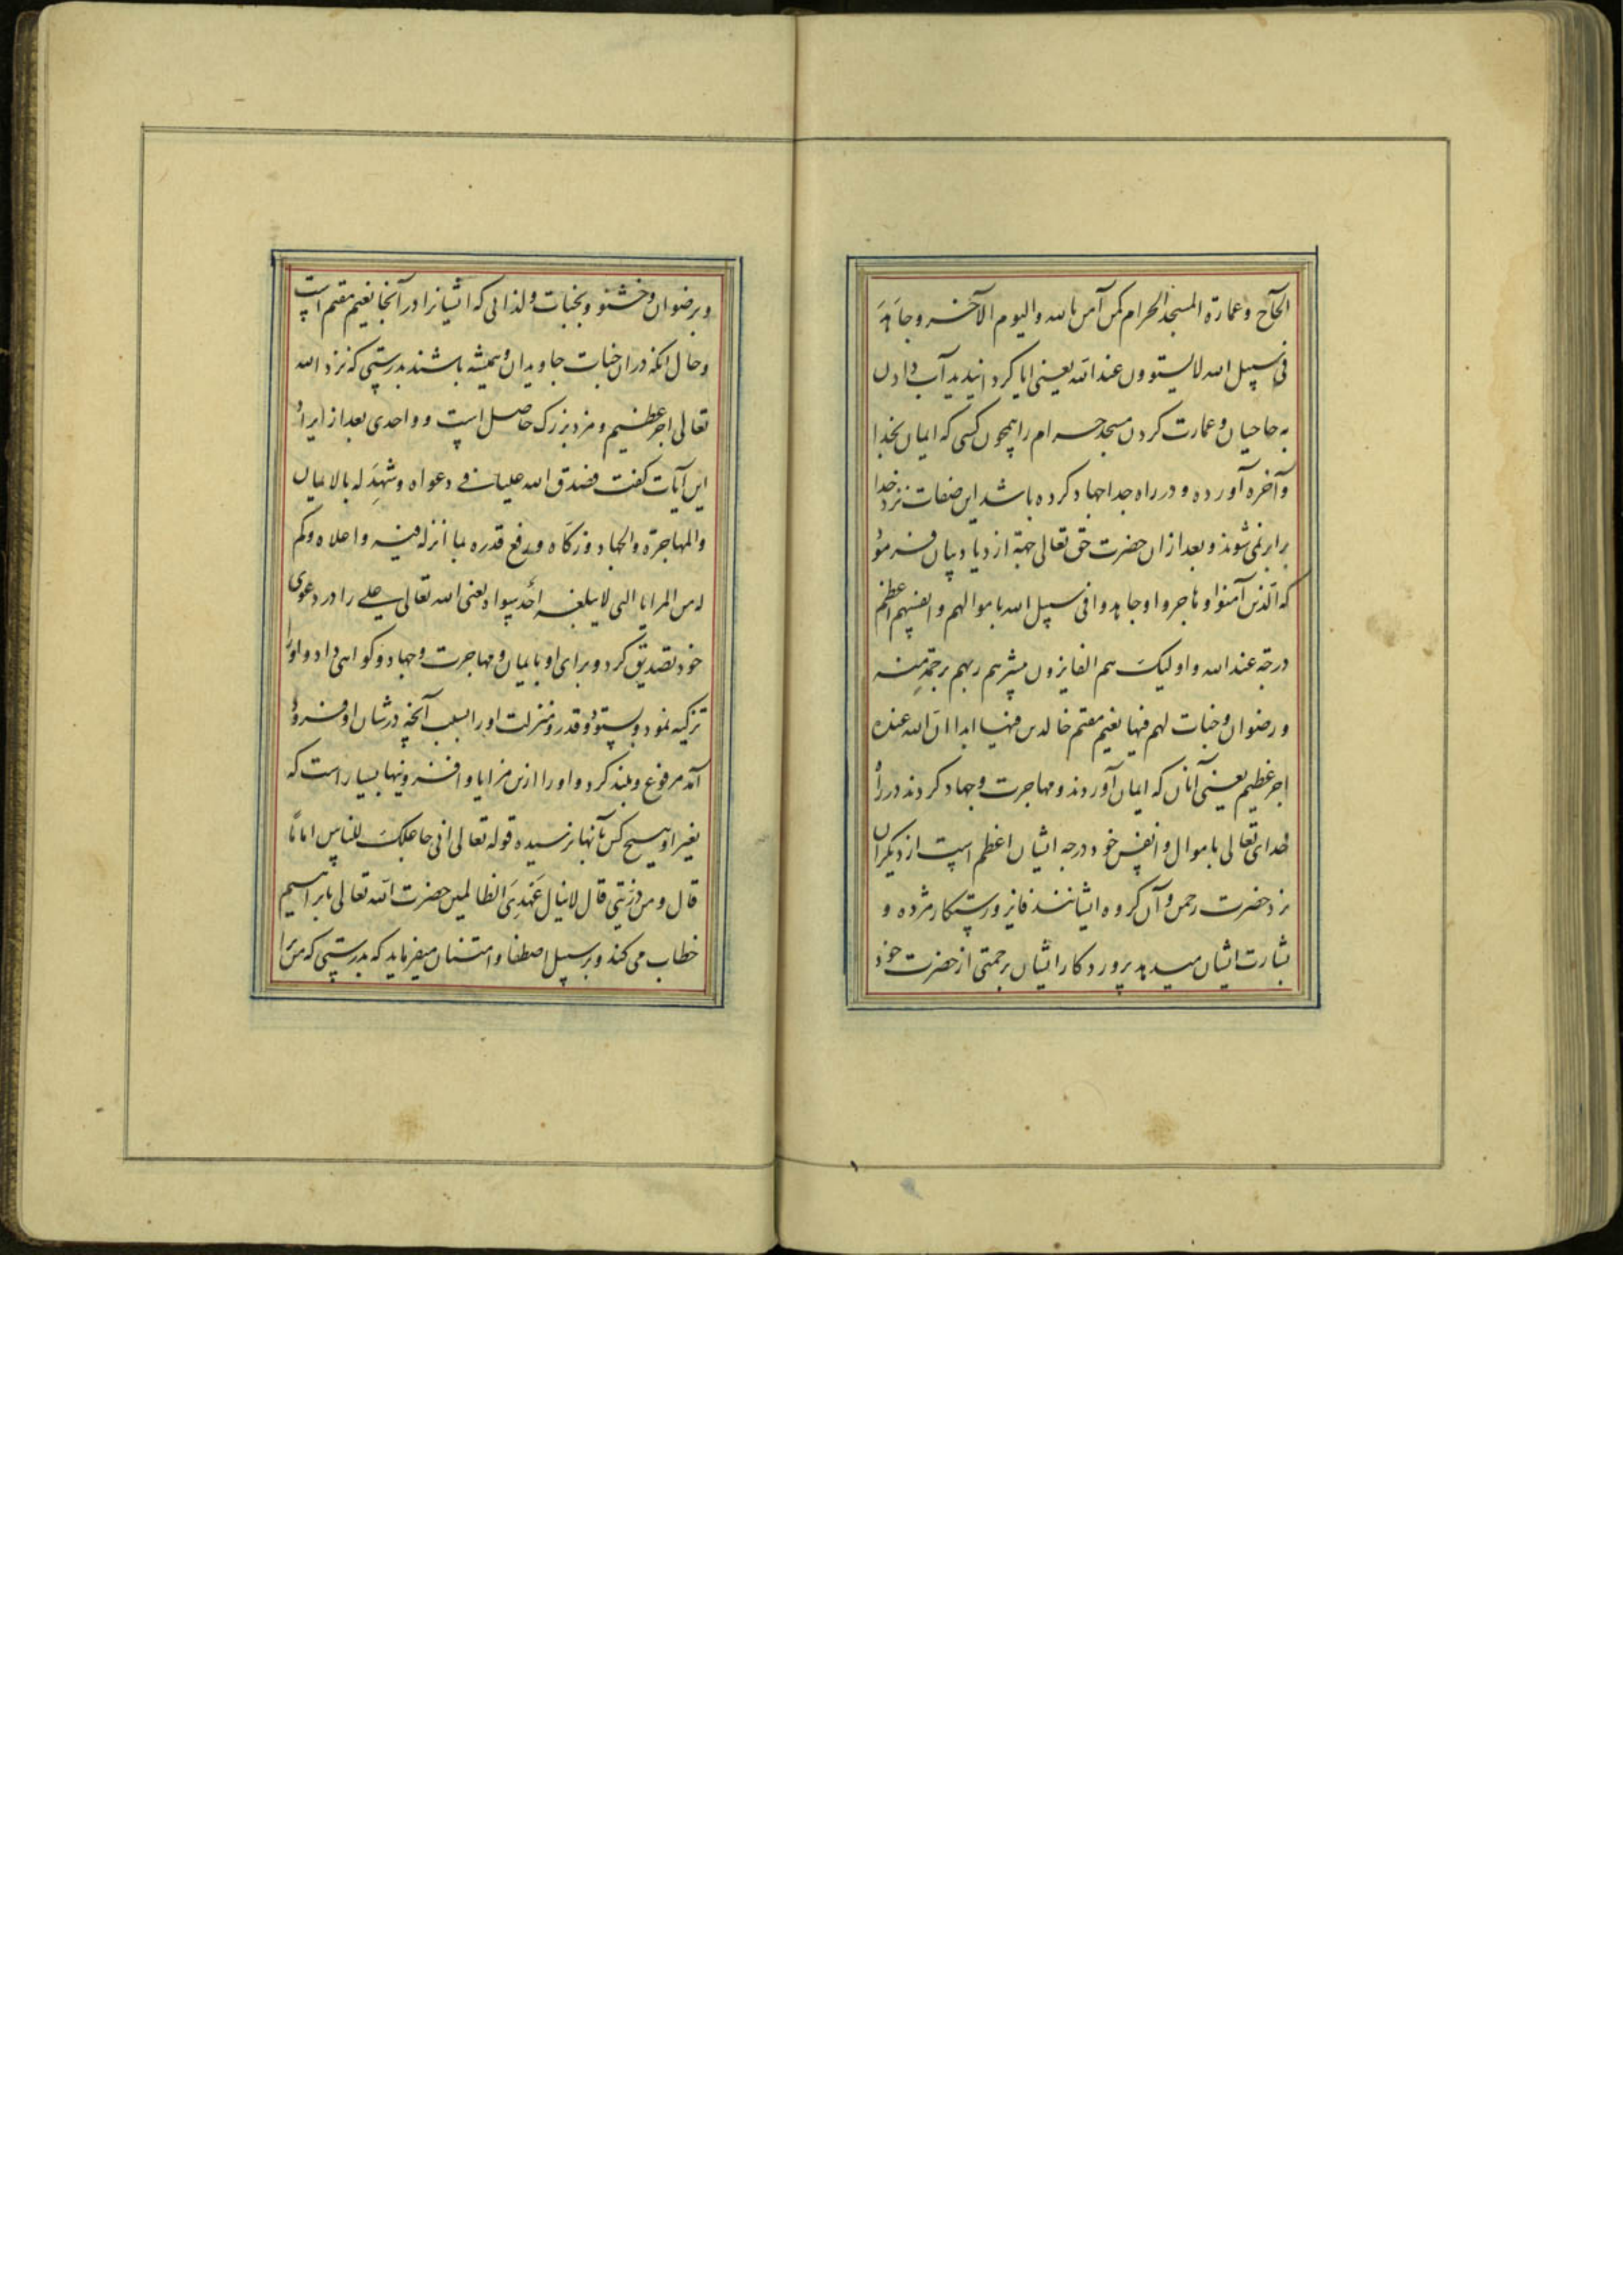 الحآج و عمارة المسجد الحرام کمن آمن بالله و الیوم الآخر و جاهَدَ
فی سبیل الله لا یستوون عند الله یعنی ایا کردانیدید آب دادن
به حاجیان و عمارت کردن مسجد حرام را همچون کسی که ایمان بخدا
و آخره آورده و در راه خدا جهاد کرده باشد این صفات نزد خدا
برابر نمی شوند و بعد از ان حضرت حق تعالی جهة ازدیاد بیان فرموده
که الذین آمنوا و هاجروا و جاهدوا فی سبیل الله باموالهم و انفسهم اعظم
درجة عند الله و اولیک هم الفایزون یبشرهم ربهم برحمة منه
و رضوان و جنات لهم فیها نعیم مقیم خالدین فیها ابدا ان الله عنده
اجر عظیم یعنی آنان که ایمان آوردند و مهاجرت و جهاد کردند در راه
خدای تعالی باموال و انفس خود درجه ایشان اعظم است از دیکران
نزد حضرت رحمن و آن کروه ایشانند فایز و رستکار مژده و
بشارت ایشان میدهد پروردکار ایشان برحمتی از حضرت خود
و برضوان و خشنو و بجنات و لذاتی که ایشانرا در آنجا نعیم مقیم است
و حال انکه در ان جنات جاویدان و همیشه باشند بدرستی که نزد الله
تعالی اجر عظیم و مزد بزرک حاصل است و واحدی بعد از ایراد
این آیات کفت فصدق الله علیا فی دعواه و شهِدَ له بالایمان
و المهاجرة و الجهاد و زکاه و رفع قدره بما انزل فیه و اعلاه و کم
له من المزایا التی لا یبلغه أحد سواه یعنی الله تعالی علی را در دعوی
خود تصدیق کرد و برای او بایمان و مهاجرت و جهاد و کواهی داد و اورا
تزکیه نمود و ستود و قدر و منزلت او را بسبب آنچه در شان او فرود
آمد مرفوع و بلند کرد و او را ازین مزایا و افزونیها بسیار است که
بغیر او هیچ کس بآنها نرسیده قوله تعالی انی جاعلک للناس اماما
قال و من ذریتی قال لا ینال عَهدِیَ الظالمین حضرت الله تعالی بابراهیم
خطاب می کند و بر سبیل اصطفا و امتنان میفرماید که بدرستی که من ترا